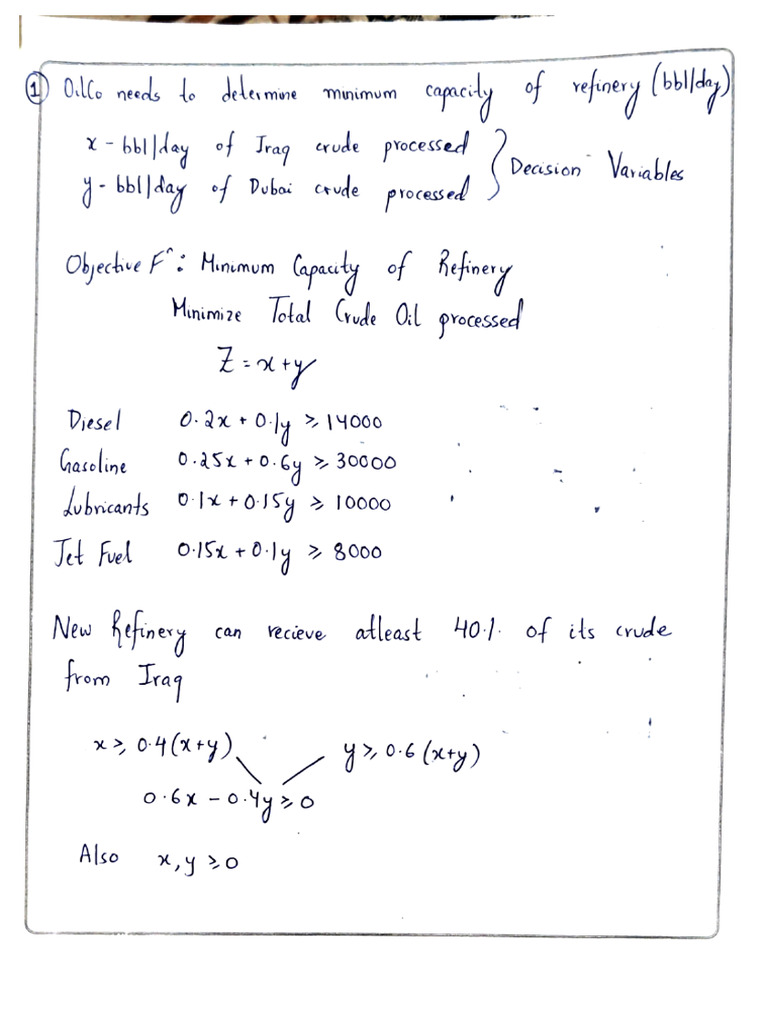 ① OilCo needs to determine minimum capacity of refinery (bbl/day)
x - bbl/day of Iraq crude processed
y - bbl/day of Dubai crude processed } Decision Variables
Objective Fⁿ: Minimum Capacity of Refinery
Minimize Total Crude Oil processed
Z = x+y
Diesel 0.2x + 0.1y ≥ 14000
Gasoline 0.25x + 0.6y ≥ 30000
Lubricants 0.1x + 0.15y ≥ 10000
Jet Fuel 0.15x + 0.1y ≥ 8000
New Refinery can recieve atleast 40% of its crude
from Iraq
x ≥ 0.4(x+y) y ≥ 0.6(x+y)
0.6x - 0.4y ≥ 0
Also x, y ≥ 0